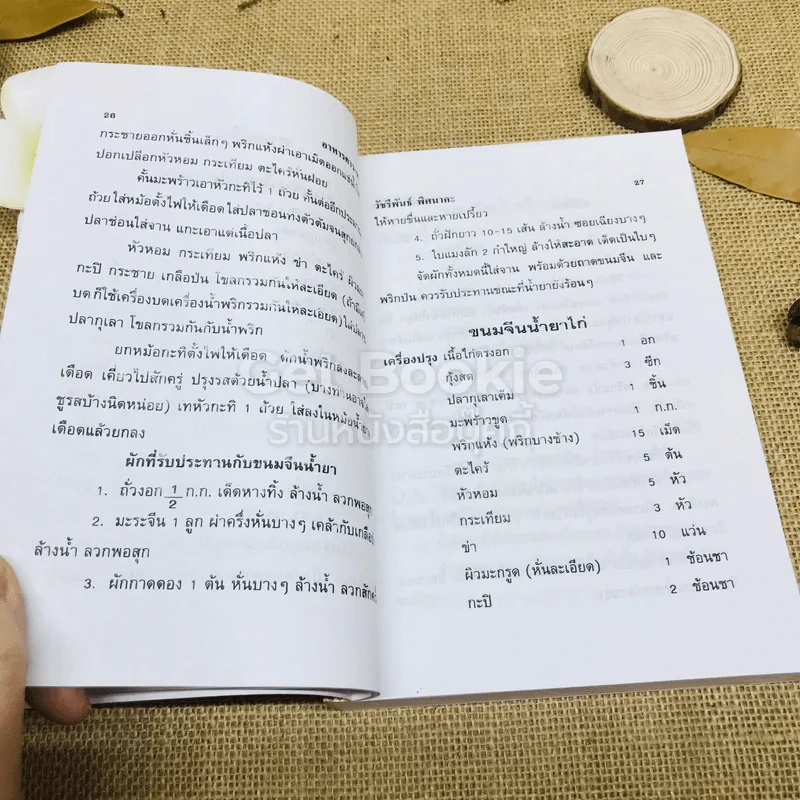 26
อาหารคาว
กระชายออกหั่นชิ้นเล็กๆ พริกแห้งผ่าเอาเม็ดออกแช่น้ำ
ปอกเปลือกหัวหอม กระเทียม ตะไคร้หั่นฝอย
คั้นมะพร้าวเอาหัวกะทิไว้ 1 ถ้วย คั้นต่ออีกประมาณ
ถ้วยใส่หม้อตั้งไฟให้เดือด ใส่ปลาช่อนทั้งตัวต้มจนสุก
ปลาช่อนใส่จาน แกะเอาแต่เนื้อปลา
หัวหอม กระเทียม พริกแห้ง ข่า ตะไคร้ ผิว
กะปิ กระชาย เกลือป่น โขลกรวมกันให้ละเอียด
บดก็ใช้เครื่องบดเครื่องน้ำพริกรวมกันให้ละเอียด) ใส่
ปลากุเลา โขลกรวมกันกับน้ำพริก
ยกหม้อกะทิตั้งไฟให้เดือด ตักน้ำพริกลงละลาย
เดือด เคี่ยวไปสักครู่ ปรุงรสด้วยน้ำปลา (บางท่าน
ชูรสบ้างนิดหน่อย) เทหัวกะทิ 1 ถ้วย ใส่ลงในหม้อน้ำยา
เดือดแล้วยกลง
ผักที่รับประทานกับขนมจีนน้ำยา
1. ถั่วงอก 1/2 ก.ก. เด็ดหางทิ้ง ล้างน้ำ ลวกพอสุก
2. มะระจีน 1 ลูก ผ่าครึ่งหั่นบางๆ เคล้ากับเกลือป่น
ล้างน้ำ ลวกพอสุก
3. ผักกาดดอง 1 ต้น หั่นบางๆ ล้างน้ำ ลวก
27
วัชรีพันธ์ พิศนาคะ
ให้หายขื่นและหายเปรี้ยว
4. ถั่วฝักยาว 10-15 เส้น ล้างน้ำ ซอยเฉียงบางๆ
5. ใบแมงลัก 2 กำใหญ่ ล้างให้สะอาด เด็ดเป็นใบๆ
จัดผักทั้งหมดนี้ใส่จาน พร้อมด้วยถาดขนมจีน และ
พริกป่น ควรรับประทานขณะที่น้ำยายังร้อนๆ
ขนมจีนน้ำยาไก่
เครื่องปรุง เนื้อไก่ตรงอก 1 อก
กุ้งสด 3 ขีด
ปลากุเลาเค็ม 1 ชิ้น
มะพร้าวขูด 1 ก.ก.
พริกแห้ง (พริกบางช้าง) 15 เม็ด
ตะไคร้ 5 ต้น
หัวหอม 5 หัว
กระเทียม 3 หัว
ข่า 10 แว่น
ผิวมะกรูด (หั่นละเอียด) 1 ช้อนชา
กะปิ 2 ช้อนชา
Get Bookie
ร้านหนังสือบุ๊คกี้